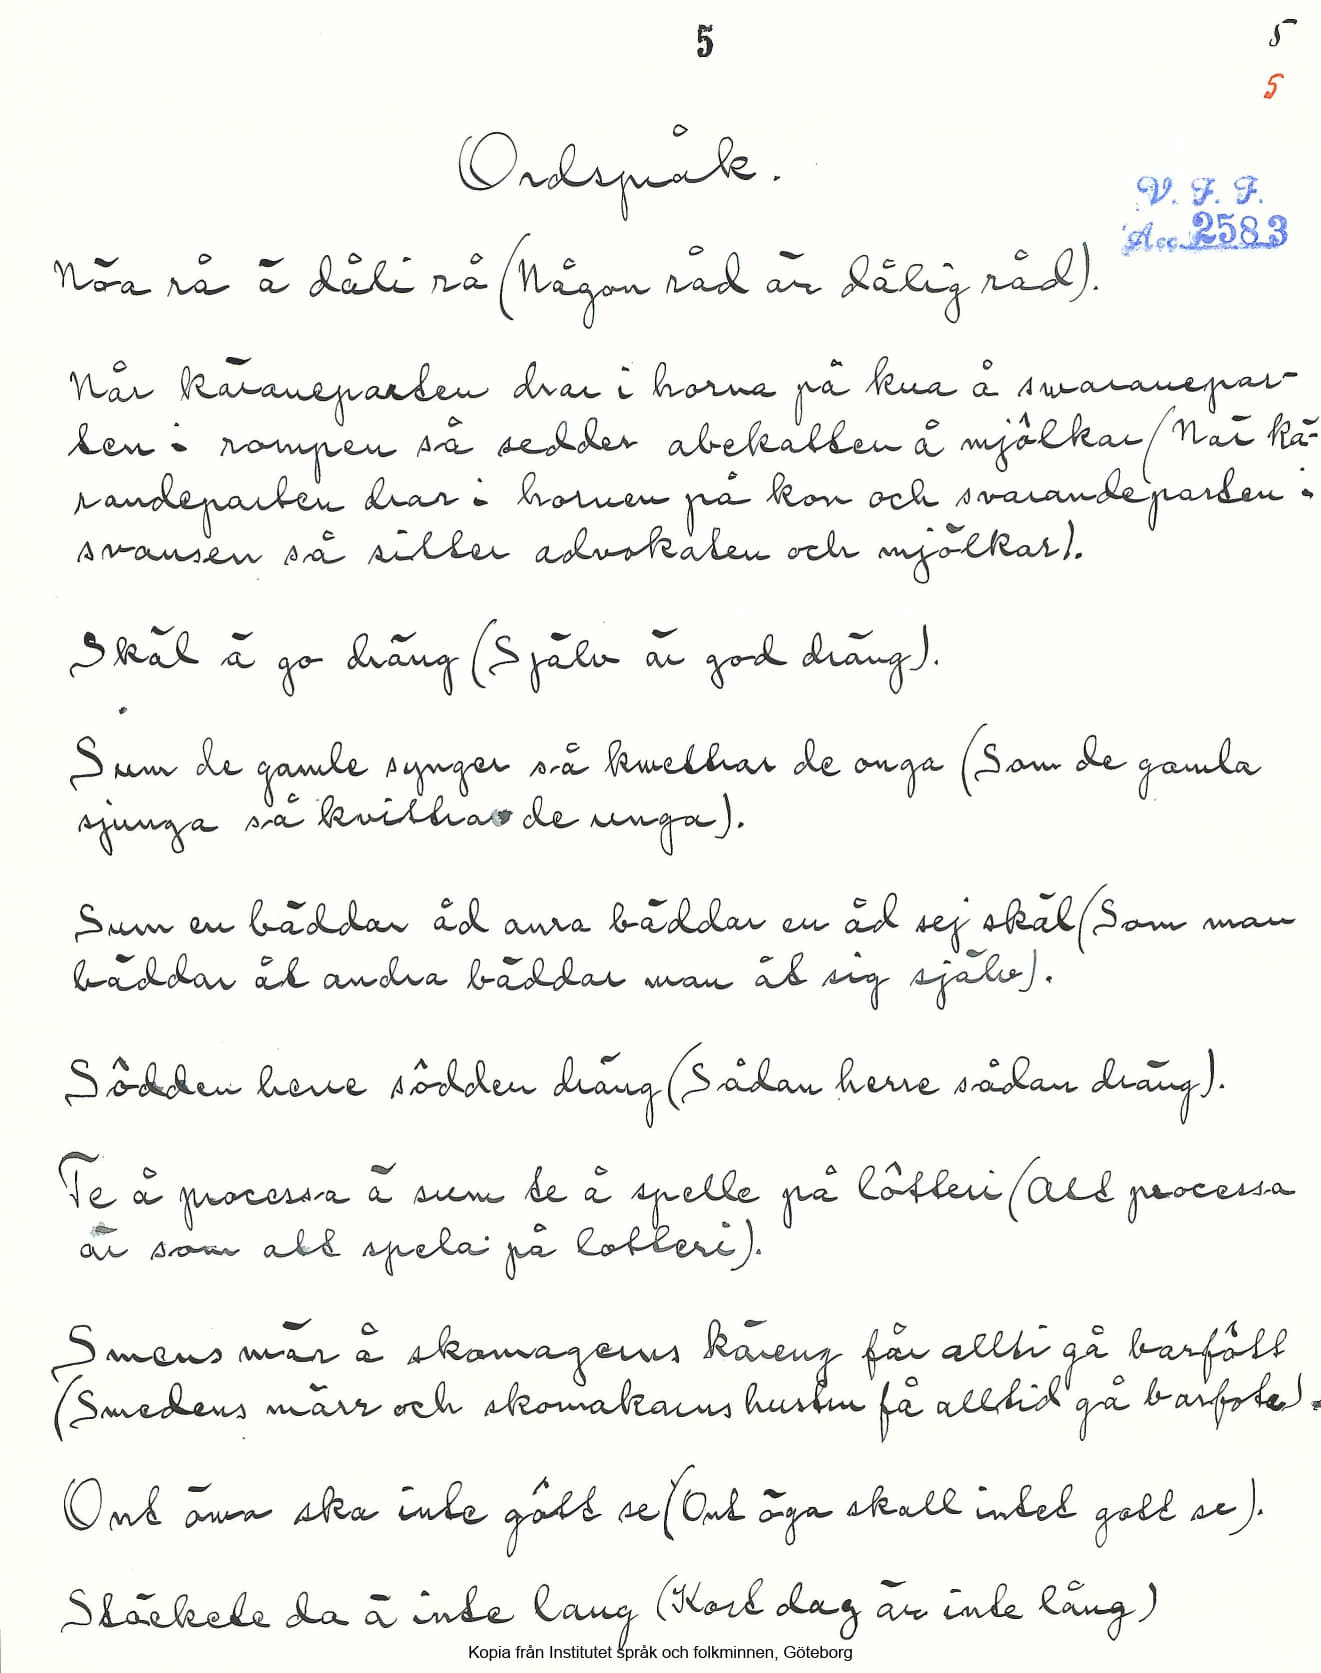 5
5
5
Ordspråk.
V. F. F.
Acc. 2583
Nöa rå ä dåli rå (Någon råd är dålig råd).
Når käraneparten drar i horna på kua å swaranepar-
ten i rompen så sedder abekatten å mjôlkar (När kä-
randeparten drar i hornen på kon och svarandeparten i
svansen så sitter advokaten och mjölkar).
Skäl ä go dräng (Själv är god dräng).
Sum de gamle synger så kwettrar de onga (Som de gamla
sjunga så kvittra de unga).
Sum en bäddar åd anra bäddar en åd sej skäl (Som man
bäddar åt andra bäddar man åt sig själv).
Sôdden herre sôdden dräng (Sådan herre sådan dräng).
Te å processa ä sum te å spelle på lôtteri (Att processa
är som att spela på lotteri).
Smens mär å skomagerns käreng får allti gå barfôtt
(Smedens märr och skomakarns hustru få alltid gå barfota).
Ont öwa ska inte gôtt se (Ont öga skall intet gott se).
Stäckete da ä inte lang (Kort dag är inte lång)
Kopia från Institutet språk och folkminnen, Göteborg